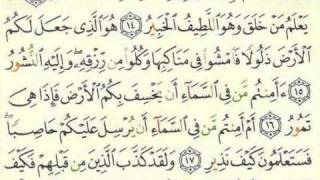 يَعْلَمُ مَنْ خَلَقَ وَهُوَ اللَّطِيفُ الْخَبِيرُ ١٤ هُوَ الَّذِي جَعَلَ لَكُمُ
الْأَرْضَ ذَلُولًا فَامْشُوا فِي مَنَاكِبِهَا وَكُلُوا مِن رِّزْقِهِ ۖ وَإِلَيْهِ النُّشُورُ
١٥ ءَأَمِنتُم مَّن فِي السَّمَاءِ أَن يَخْسِفَ بِكُمُ الْأَرْضَ فَإِذَا هِيَ
تَمُورُ ١٦ أَمْ أَمِنتُم مَّن فِي السَّمَاءِ أَن يُرْسِلَ عَلَيْكُمْ حَاصِبًا ۖ
فَسَتَعْلَمُونَ كَيْفَ نَذِيرِ ١٧ وَلَقَدْ كَذَّبَ الَّذِينَ مِن قَبْلِهِمْ فَكَيْفَ